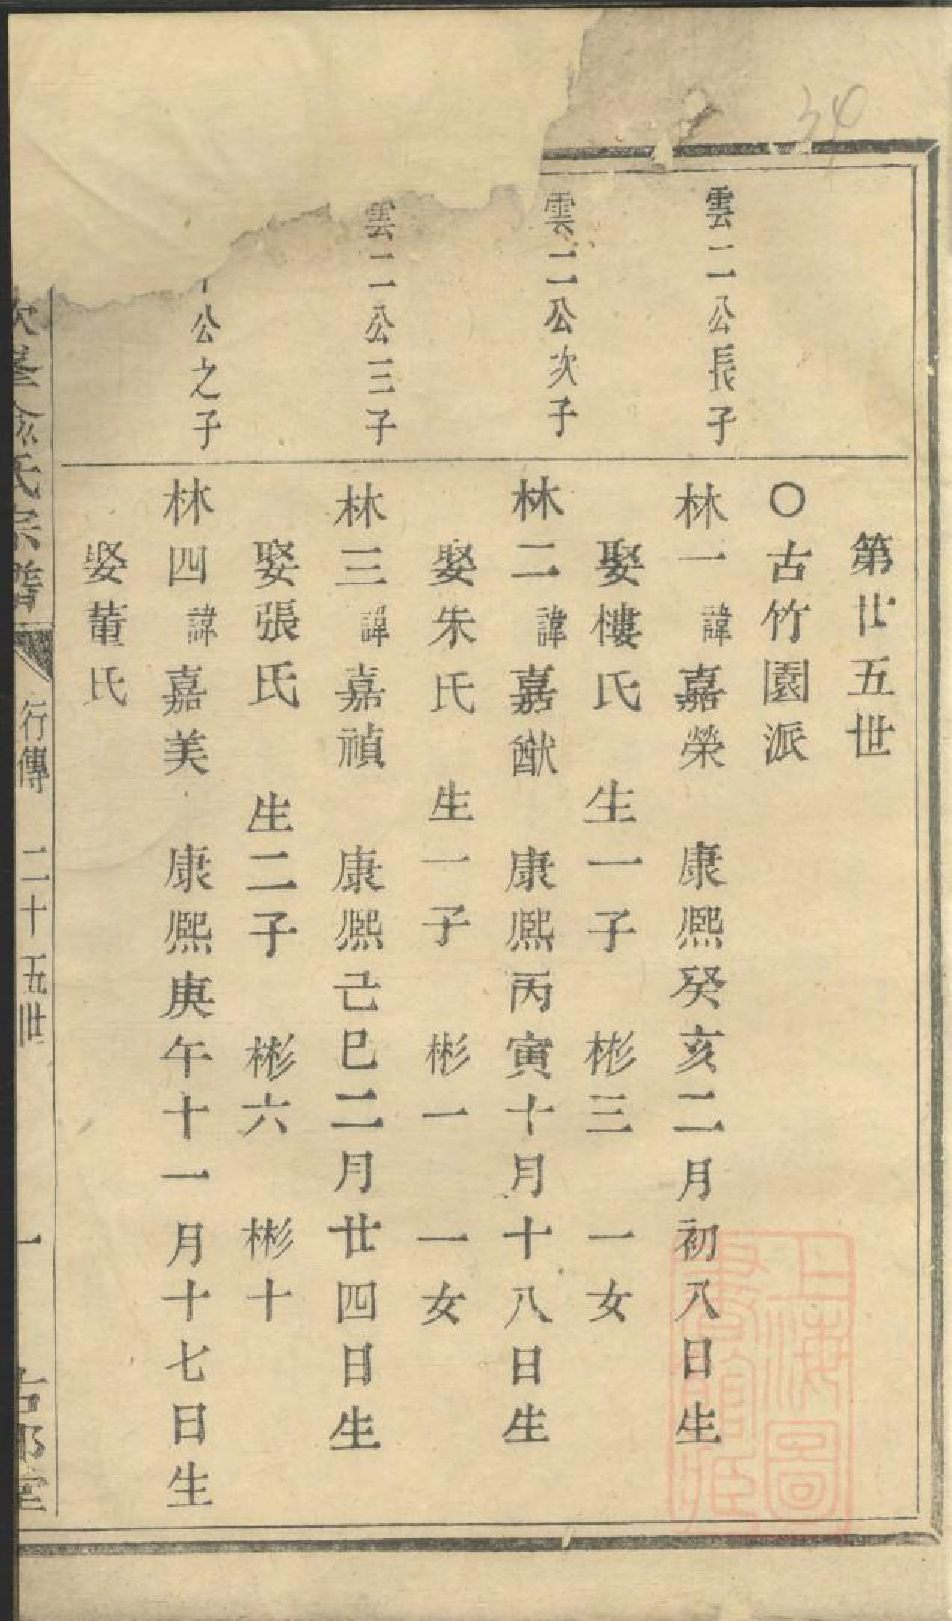 34
第廿五世
○古竹園派
雲二公長子
林一諱嘉榮 康熙癸亥二月初八日生
娶樓氏 生一子 彬三 一女
雲二公次子
林二諱嘉猷 康熙丙寅十月十八日生
娶朱氏 生一子 彬一 一女
雲二公三子
林三諱嘉禎 康熙己巳二月廿四日生
娶張氏 生二子 彬六 彬十
公之子
林四諱嘉美 康熙庚午十一月十七日生
娶董氏
氏宗譜 行傳 二十五世 一 堂
上海圖書館藏